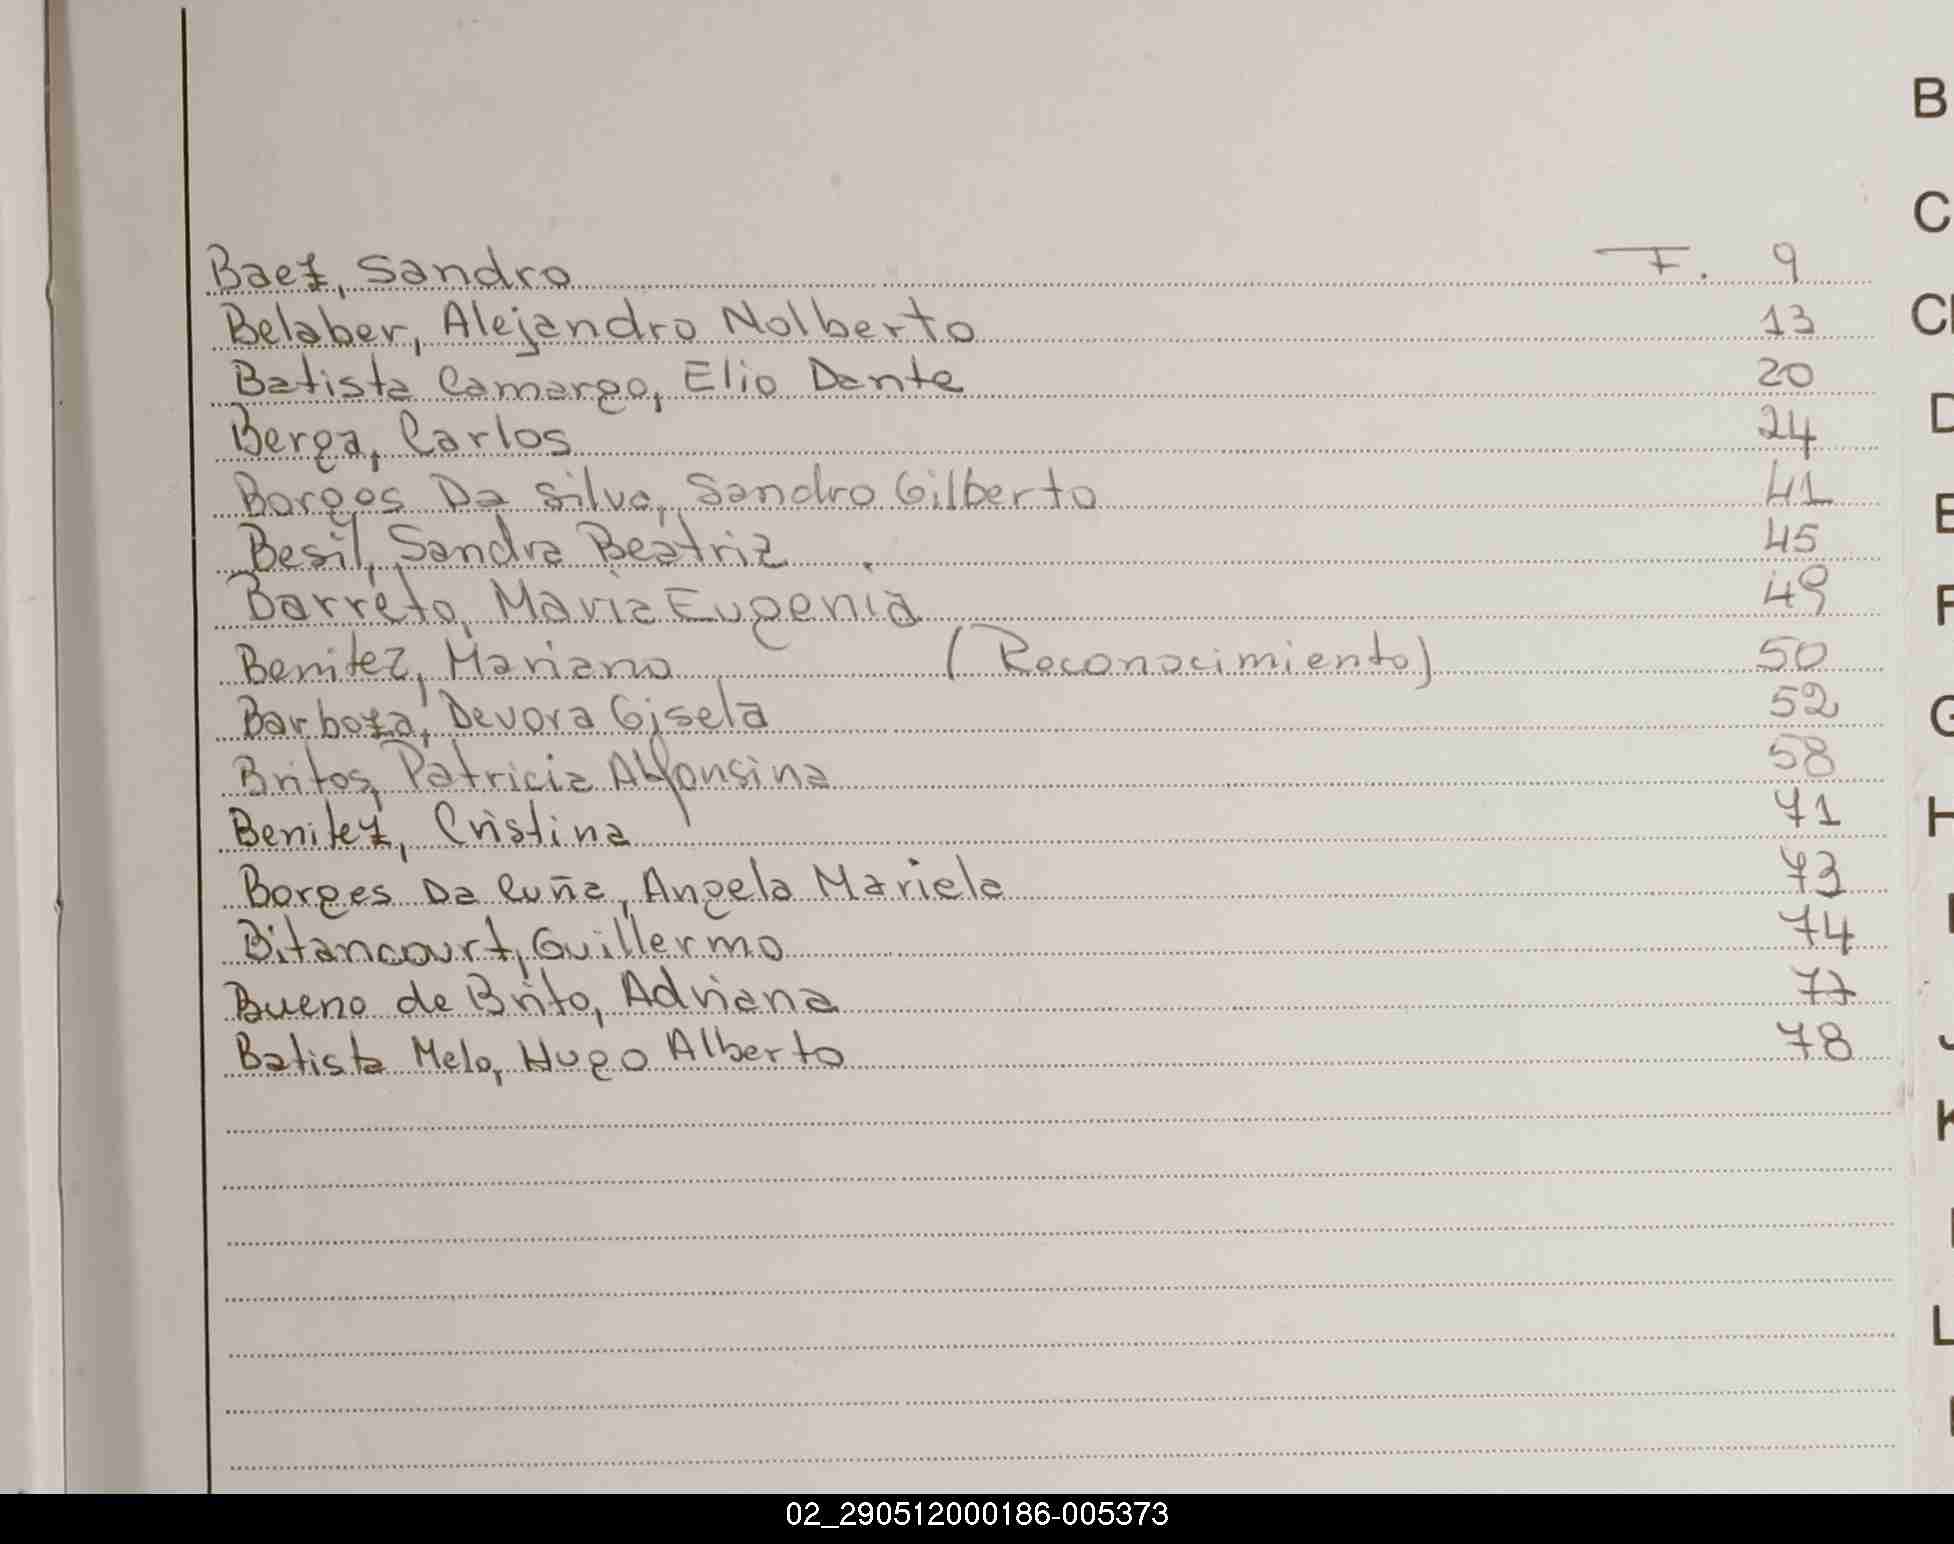 Baez, Sandro F. 9
Belaber, Alejandro Nolberto 13
Batista Camargo, Elio Dante 20
Berga, Carlos 24
Borges Da Silva, Sandro Gilberto 41
Besil, Sandra Beatriz 45
Barreto, Maria Eugenia 49
Benitez, Mariano (Reconocimiento) 50
Barboza, Devora Gisela 52
Britos, Patricia Alfonsina 58
Benitez, Cristina 71
Borges Da Cuña, Angela Mariela 73
Bitancourt, Guillermo 74
Bueno de Brito, Adriana 77
Batista Melo, Hugo Alberto 78
B
C
D
G
H
J
K
L
02_290512000186-005373